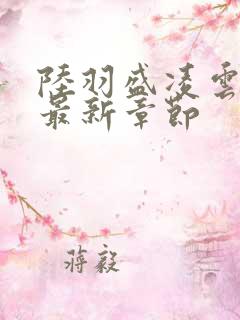 陸羽盛凌雲
最新章節
蔣毅